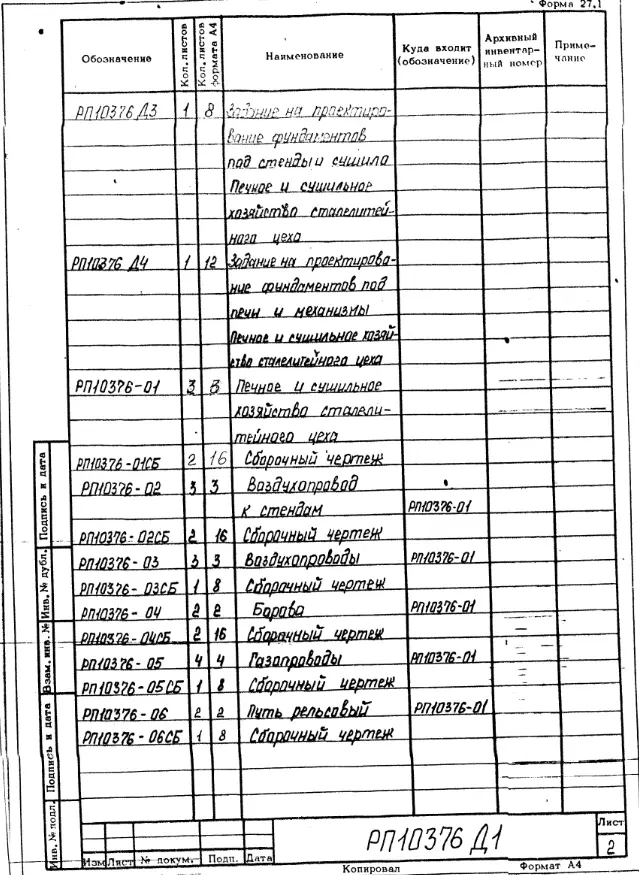 Форма 27.1
Обозначение Кол. листов Кол. листов формата А4 Наименование Куда входит (обозначение) Архивный инвентарный номер Примечание
РП10376 Д3 1 8 Задание на проектиро-
вание фундаментов
под стенды и сушила
Печное и сушильное
хозяйство сталелитей-
ного цеха
РП10376 Д4 1 12 Задание на проектирова-
ние фундаментов под
печи и механизмы
Печное и сушильное хозяй-
ство сталелитейного цеха
РП10376-01 3 3 Печное и сушильное
хозяйство сталели-
тейного цеха
РП10376-01СБ 2 16 Сборочный чертеж
РП10376-02 3 3 Воздухопровод
к стендам РП10376-01
РП10376-02СБ 2 16 Сборочный чертеж
РП10376-03 3 3 Воздухопроводы РП10376-01
РП10376-03СБ 1 8 Сборочный чертеж
РП10376-04 2 2 Борова РП10376-01
РП10376-04СБ 2 16 Сборочный чертеж
РП10376-05 4 4 Газопроводы РП10376-01
РП10376-05СБ 1 8 Сборочный чертеж
РП10376-06 2 2 Путь рельсовый РП10376-01
РП10376-06СБ 1 8 Сборочный чертеж
Подпись и дата
Инв. № дубл.
Взам. инв. №
Подпись и дата
Инв. № подл.
Изм Лист № докум. Подп. Дата
РП10376 Д1
Лист
2
Копировал Формат А4